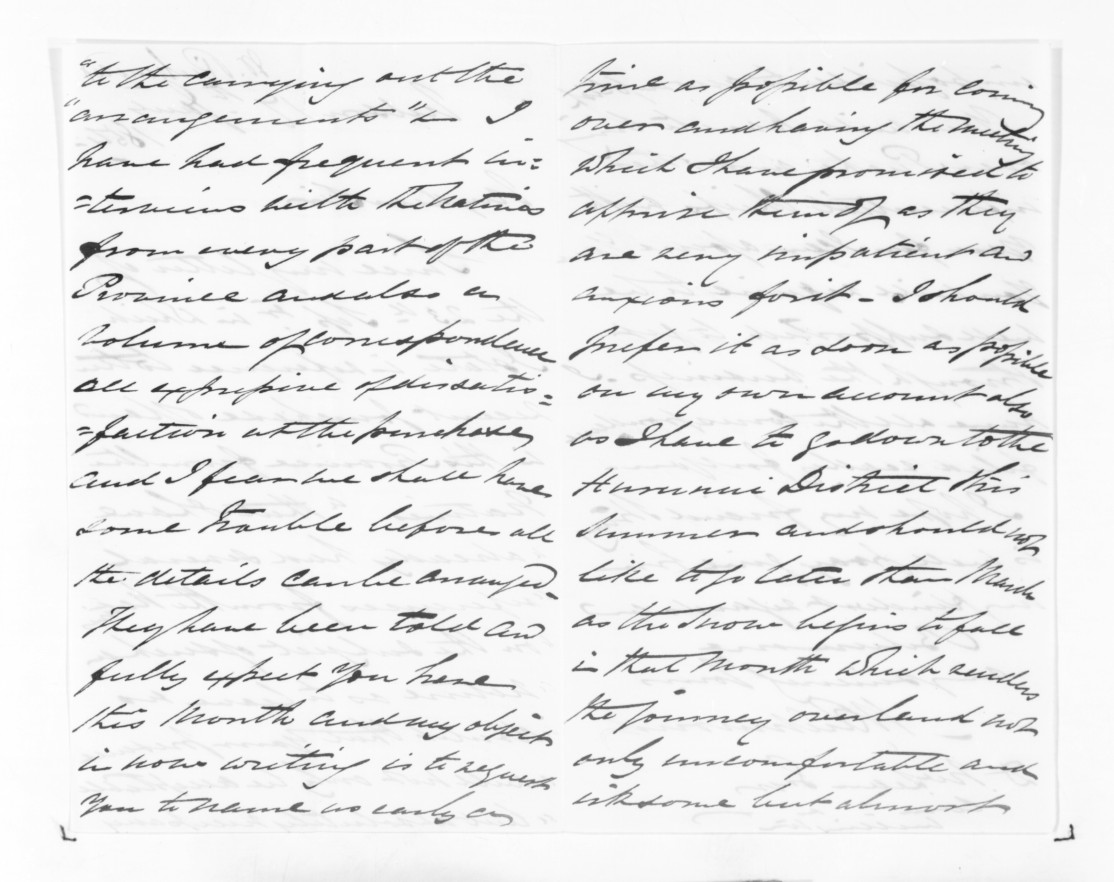 "to the carrying out the
"arrangements" & I
have had frequent in=
=terviews with the Natives
from every part of the
Province and also a
volume of correspondence
all expressive of dissatis=
=faction at the purchases
and I fear we shall have
some trouble before all
the details can be arranged.
They have been told and
fully expect you here
this Month and my object
in now writing is to request
You to name as early a
time as possible for coming
over and having the meeting
which I have promised to
apprise them of as they
are very impatient and
anxious for it - I should
prefer it as soon as possible
on my own account also
as I have to go down to the
Hurunui District this
Summer and should not
like to go later than March
as the Snow begins to fall
in that Month which renders
the journey overland not
only uncomfortable and
irksome but almost